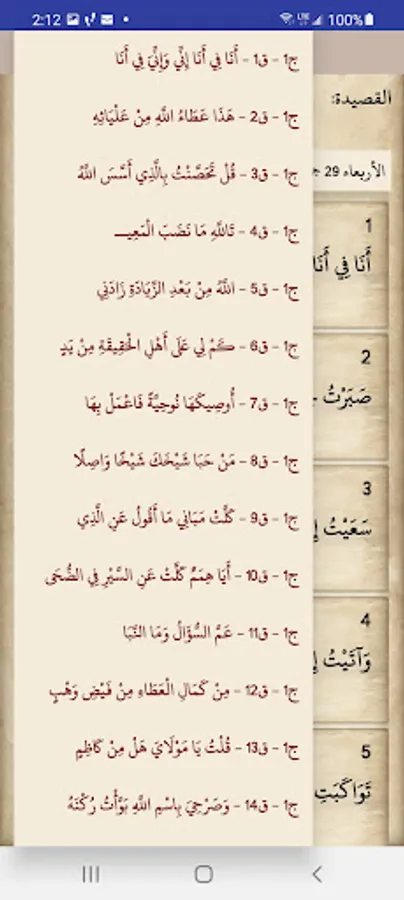 2:12 100%
ج1 - ق1 - أَنَا فِي أَنَا إِنِّي وَإِنِّيَ فِي أَنَا
ج1 - ق2 - هَذَا عَطَاءُ اللَّهِ مِنْ عَلْيَائِهِ
ج1 - ق3 - قُلْ تَحَصَّنْتُ بِالَّذِي أَسَّسَ اللَّهُ
ج1 - ق4 - تَاللَّهِ مَا نَضَبَ الْمَعِيـــ
ج1 - ق5 - اللَّهُ مِنْ بَعْدِ الزِّيَادَةِ زَادَنِي
ج1 - ق6 - كَمْ لِي عَلَى أَهْلِ الْحَقِيقَةِ مِنْ يَدٍ
ج1 - ق7 - أُوصِيكَهَا نُوحِيَّةً فَاعْمَلْ بِهَا
ج1 - ق8 - مَنْ حَبَا شَيْخَكَ شَيْخًا وَاصِلًا
ج1 - ق9 - كَلَّتْ مَبَانِي مَا أَقُولُ عَنِ الَّذِي
ج1 - ق10 - أَيَا هِمَمٌ كَلَّتْ عَنِ السَّيْرِ فِي الضُّحَى
ج1 - ق11 - عَمَّ السُّؤَالُ وَمَا النَّبَا
ج1 - ق12 - مِنْ كَمَالِ الْعَطَاءِ مِنْ فَيْضِ وَهْبٍ
ج1 - ق13 - قُلْتُ يَا مَوْلَايَ هَلْ مِنْ كَاظِمٍ
ج1 - ق14 - وَصَرْحِيَ بِاسْمِ اللَّهِ بَوَّأْتُ رُكْنَهُ
القصيدة:
الأربعاء 29
1
أَنَا فِي أَنَا
2
صَيَرْتُ
3
سَعَيْتُ
4
وَآتَيْتُ
5
تَوَاكَبَتِ